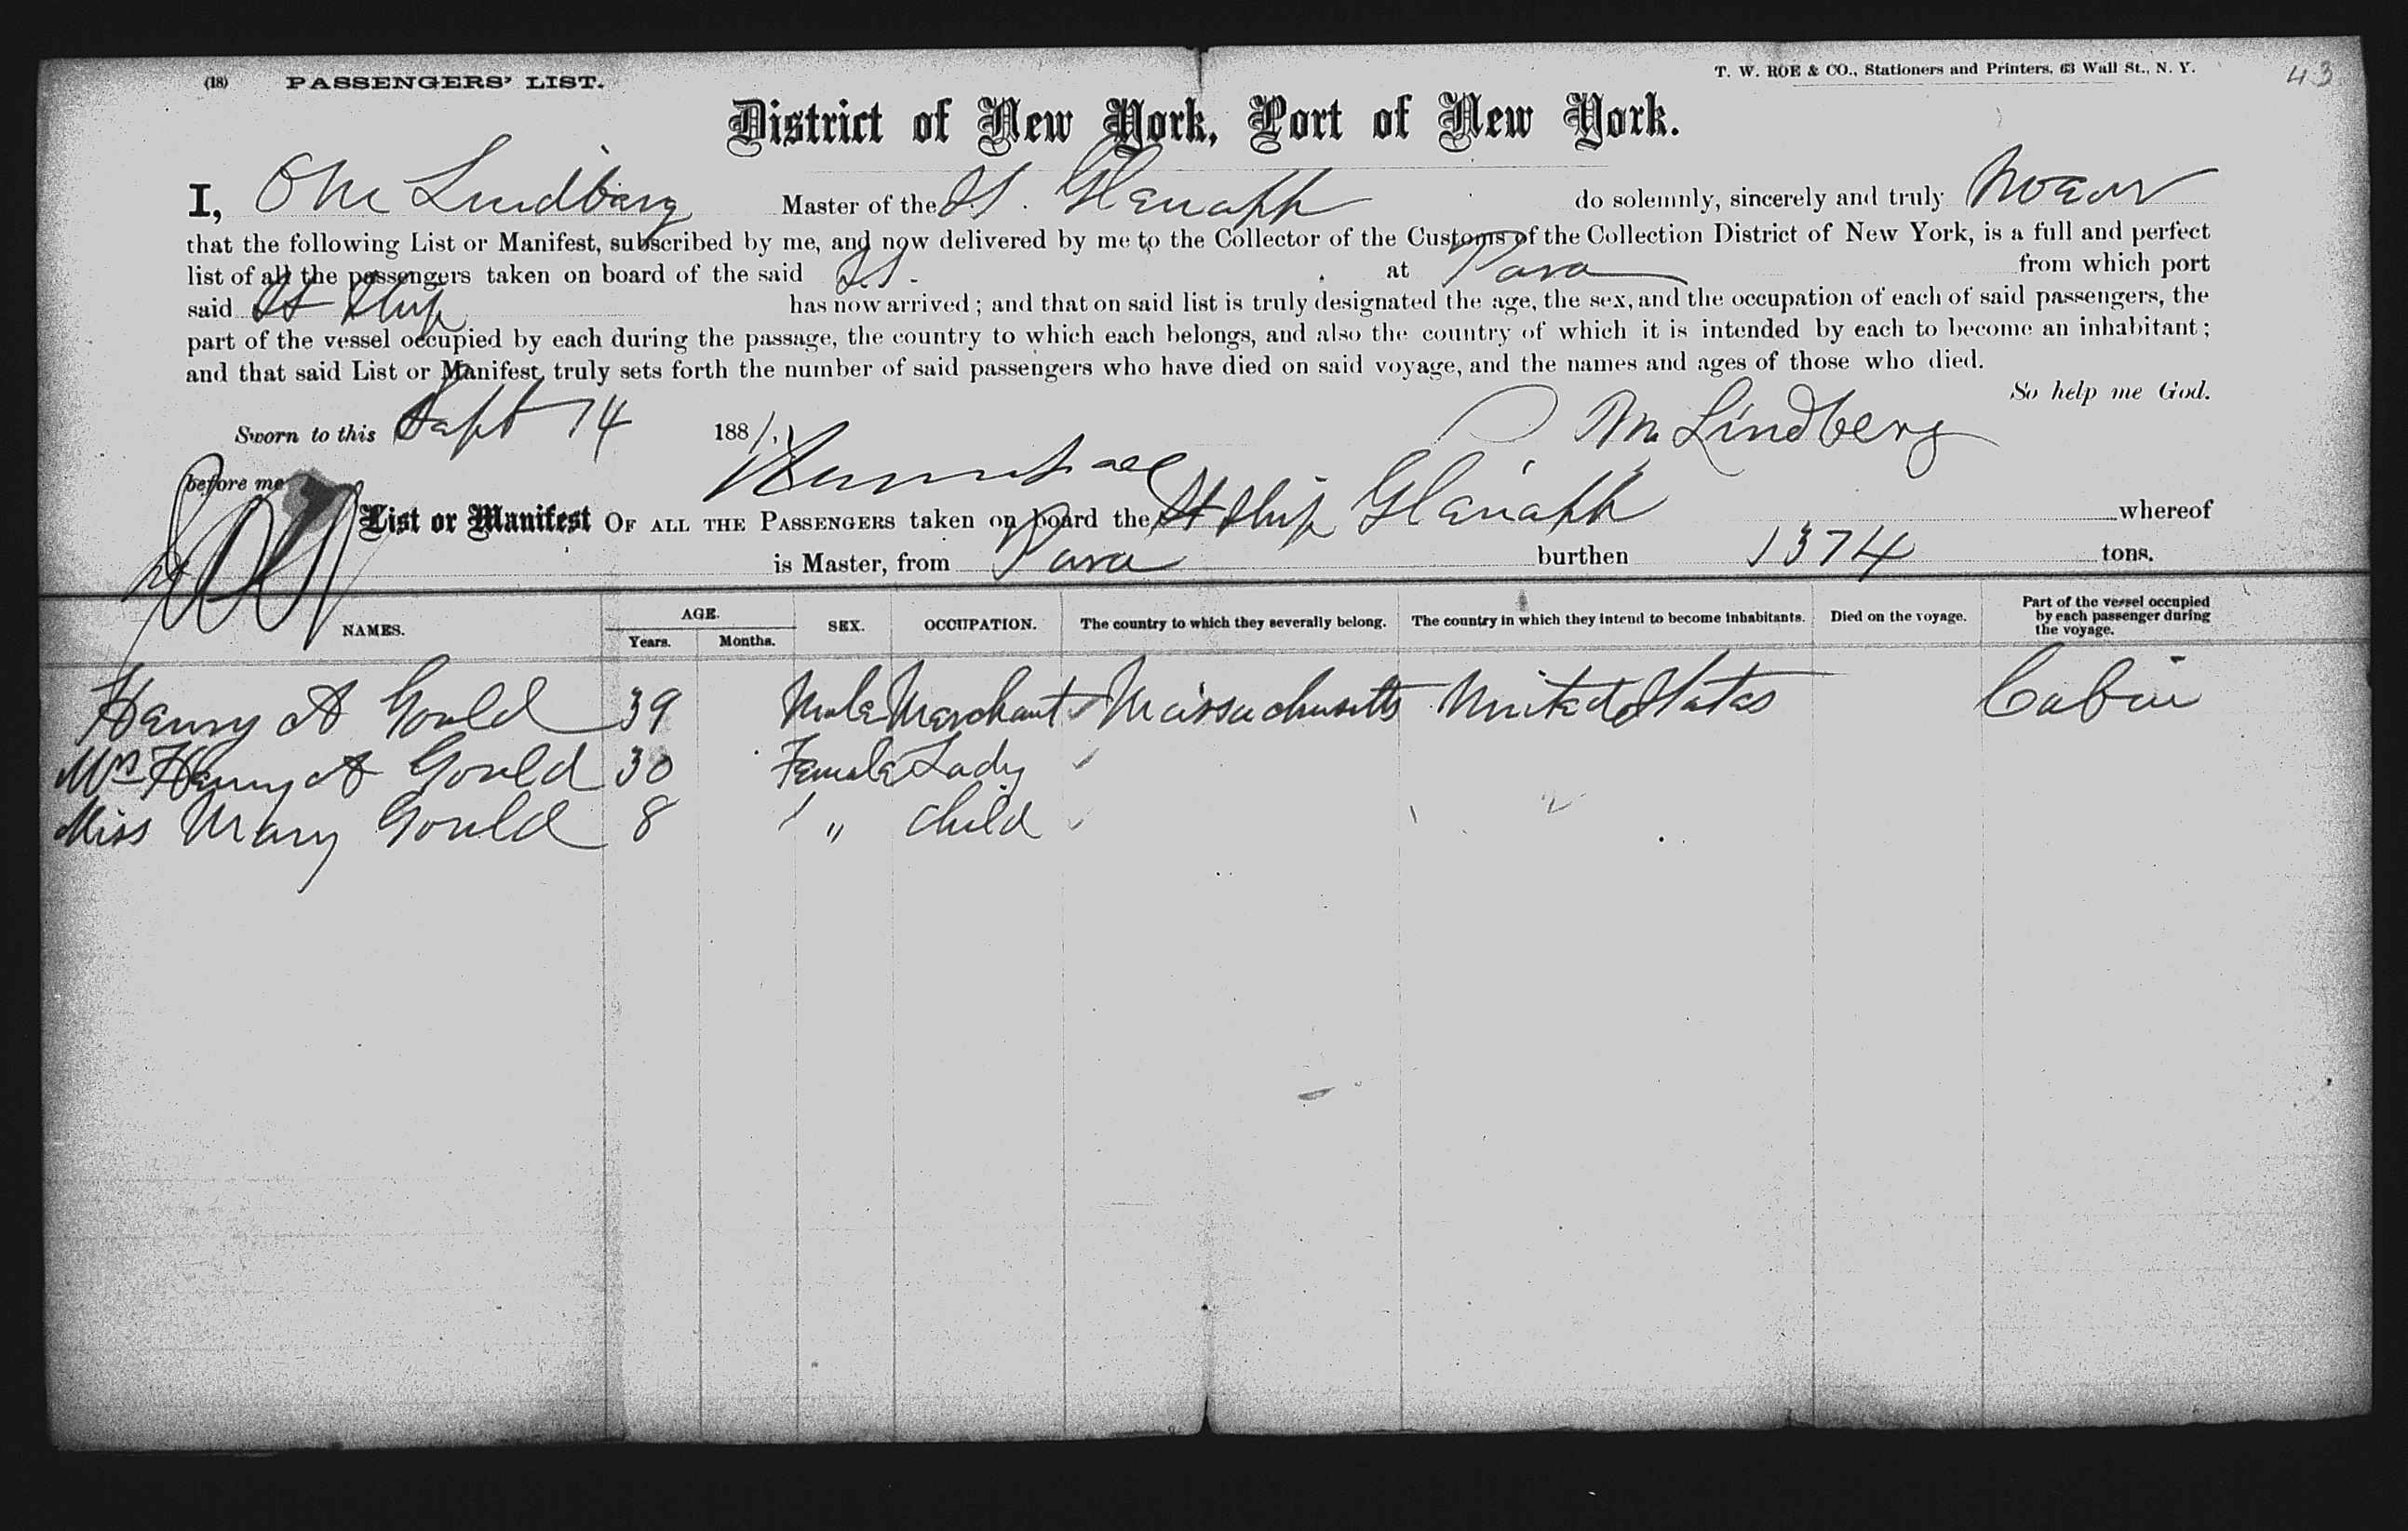 (18) PASSENGERS' LIST. T. W. ROE & CO., Stationers and Printers, 63 Wall St., N. Y. 43
District of New York, Port of New York.
I, Lindberg Master of the S.S. Glenapp do solemnly, sincerely and truly swear
that the following List or Manifest, subscribed by me, and now delivered by me to the Collector of the Customs of the Collection District of New York, is a full and perfect
list of all the passengers taken on board of the said S.S. at Para from which port
said St Ship has now arrived; and that on said list is truly designated the age, the sex, and the occupation of each of said passengers, the
part of the vessel occupied by each during the passage, the country to which each belongs, and also the country of which it is intended by each to become an inhabitant;
and that said List or Manifest truly sets forth the number of said passengers who have died on said voyage, and the names and ages of those who died.
So help me God.
Sworn to this Sept 14 1881. Lindberg
before me
List or Manifest OF ALL THE PASSENGERS taken on board the St Ship Glenapp whereof
is Master, from Para burthen 1374 tons.
NAMES. AGE. Years. Months. SEX. OCCUPATION. The country to which they severally belong. The country in which they intend to become inhabitants. Died on the voyage. Part of the vessel occupied by each passenger during the voyage.
Henry A Gould 39 Male Merchant Massachusetts United States Cabin
Mrs Henry A Gould 30 Female Lady
Miss Mary Gould 8 " Child